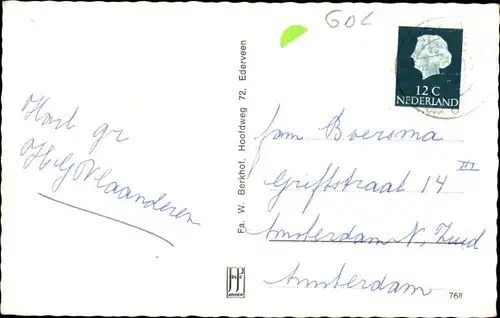 GDL
12 C
NEDERLAND
Hart gr
H G Vlaanderen
Fa. W. Berkhof. Hoofdweg 72. Ederveen
Fam Boersma
Griftstraat 14 III
Amsterdam N. Zuid
Amsterdam
768